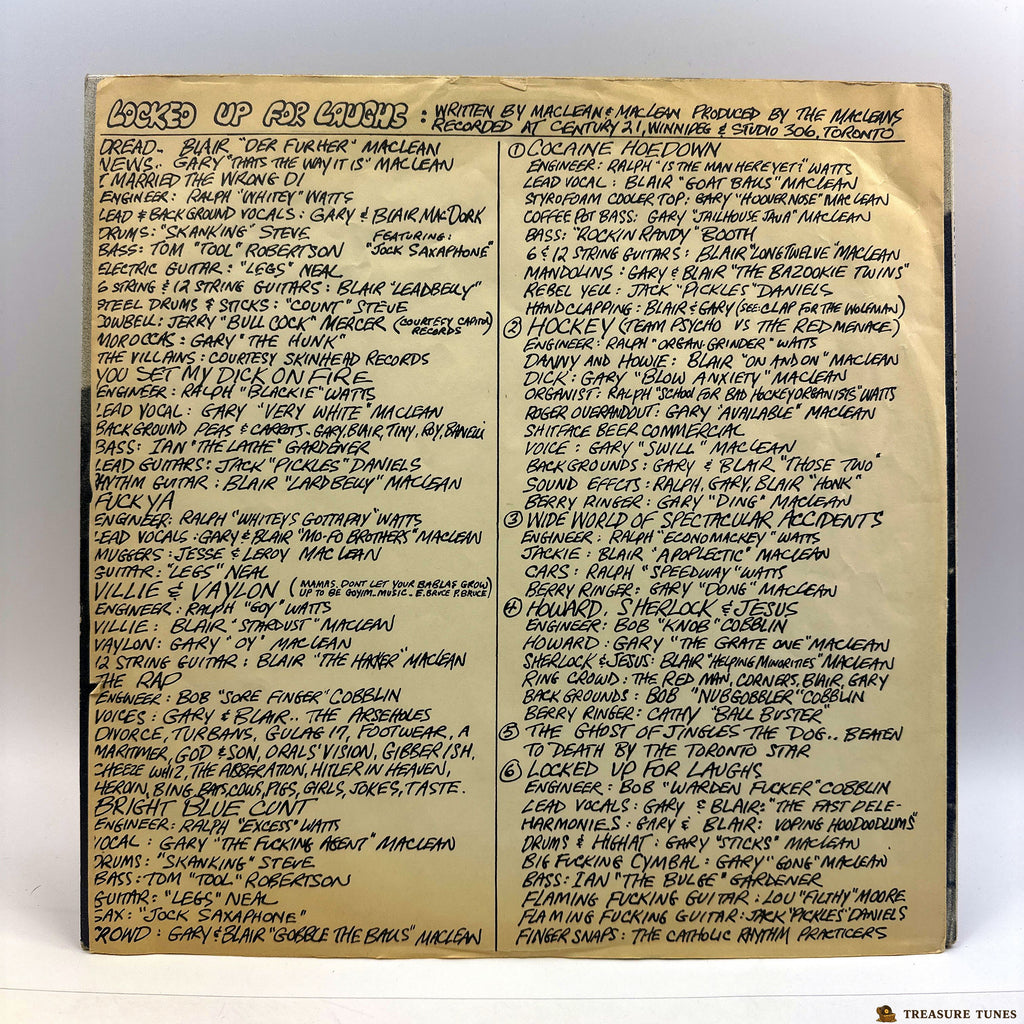 LOCKED UP FOR LAUGHS : WRITTEN BY MACLEAN & MACLEAN PRODUCED BY THE MACLEANS
RECORDED AT CENTURY 21, WINNIPEG & STUDIO 306, TORONTO
DREAD.. BLAIR "DER FURHER" MACLEAN
NEWS.. GARY "THATS THE WAY IT IS" MACLEAN
I MARRIED THE WRONG DI
ENGINEER: RALPH "WHITEY" WATTS
LEAD & BACKGROUND VOCALS: GARY & BLAIR MACDORK
DRUMS: "SKANKING" STEVE
BASS: TOM "TOOL" ROBERTSON
FEATURING:
"JOCK SAXAPHONE"
ELECTRIC GUITAR: "LEGS" NEAL
6 STRING & 12 STRING GUITARS: BLAIR "LEADBELLY"
STEEL DRUMS & STICKS: "COUNT" STEVE
COWBELL: JERRY "BULL COCK" MERCER (COURTESY CAPITOL RECORDS)
MOROCCAS: GARY "THE HUNK"
THE VILLAINS: COURTESY SKINHEAD RECORDS
YOU SET MY DICK ON FIRE
ENGINEER: RALPH "BLACKIE" WATTS
LEAD VOCAL: GARY "VERY WHITE" MACLEAN
BACKGROUND PEAS & CARROTS: GARY, BLAIR, TINY, ROY,
BASS: IAN "THE LATHE" GARDENER
LEAD GUITARS: JACK "PICKLES" DANIELS
RHYTHM GUITAR: BLAIR "LARDBELLY" MACLEAN
FUCK YA
ENGINEER: RALPH "WHITEYS GOTTAPAY" WATTS
LEAD VOCALS: GARY & BLAIR "MO-FO BROTHERS" MACLEAN
MUGGERS: JESSE & LEROY MACLEAN
GUITAR: "LEGS" NEAL
VILLIE & VAYLON (MAMAS, DONT LET YOUR BABLAS GROW
UP TO BE GOYIM.. MUSIC.. E. BRUCE P. BRUCE)
ENGINEER: RALPH "GOY" WATTS
VILLIE: BLAIR "STARDUST" MACLEAN
VAYLON: GARY "OY" MACLEAN
12 STRING GUITAR: BLAIR "THE HAKKER" MACLEAN
THE RAP
ENGINEER: BOB "SORE FINGER" COBBLIN
VOICES: GARY & BLAIR.. THE ARSEHOLES
DIVORCE, TURBANS, GULAG 17, FOOTWEAR, A
MARITIMER, GOD & SON, ORALS' VISION, GIBBERISH,
CHEEZE WHIZ, THE ABBERATION, HITLER IN HEAVEN,
HEROIN, BING, BATS, COWS, PIGS, GIRLS, JOKES, TASTE.
BRIGHT BLUE CUNT
ENGINEER: RALPH "EXCESS" WATTS
VOCAL: GARY "THE FUCKING AGENT" MACLEAN
DRUMS: "SKANKING" STEVE
BASS: TOM "TOOL" ROBERTSON
GUITAR: "LEGS" NEAL
SAX: "JOCK SAXAPHONE"
CROWD: GARY & BLAIR "GOBBLE THE BALLS" MACLEAN
① COCAINE HOEDOWN
ENGINEER: RALPH "IS THE MAN HERE YET?" WATTS
LEAD VOCAL: BLAIR "GOAT BALLS" MACLEAN
STYROFOAM COOLER TOP: GARY "HOOVER NOSE" MACLEAN
COFFEE POT BASS: GARY "JAILHOUSE JAVA" MACLEAN
BASS: "ROCKIN RANDY" BOOTH
6 & 12 STRING GUITARS: BLAIR "LONG TWELVE" MACLEAN
MANDOLINS: GARY & BLAIR "THE BAZOOKIE TWINS"
REBEL YELL: JACK "PICKLES" DANIELS
HANDCLAPPING: BLAIR & GARY (SEE: CLAP FOR THE WOLFMAN)
② HOCKEY (TEAM PSYCHO VS THE RED MENACE)
ENGINEER: RALPH "ORGAN GRINDER" WATTS
DANNY AND HOWIE: BLAIR "ON AND ON" MACLEAN
DICK: GARY "BLOW ANXIETY" MACLEAN
ORGANIST: RALPH "SCHOOL FOR BAD HOCKEY ORGANISTS" WATTS
ROGER OVERANDOUT: GARY "AVAILABLE" MACLEAN
SHITFACE BEER COMMERCIAL
VOICE: GARY "SWILL" MACLEAN
BACKGROUNDS: GARY & BLAIR "THOSE TWO"
SOUND EFFCTS: RALPH, GARY, BLAIR "HONK"
BERRY RINGER: GARY "DING" MACLEAN
③ WIDE WORLD OF SPECTACULAR ACCIDENTS
ENGINEER: RALPH "ECONOMACKEY" WATTS
JACKIE: BLAIR "APOPLECTIC" MACLEAN
CARS: RALPH "SPEEDWAY" WATTS
BERRY RINGER: GARY "DONG" MACLEAN
④ HOWARD, SHERLOCK & JESUS
ENGINEER: BOB "KNOB" COBBLIN
HOWARD: GARY "THE GRATE ONE" MACLEAN
SHERLOCK & JESUS: BLAIR "HELPING MINORITIES" MACLEAN
RING CROWD: THE RED MAN, CORNERS, BLAIR, GARY
BACKGROUNDS: BOB "NUBGOBBLER" COBBLIN
BERRY RINGER: CATHY "BALL BUSTER"
⑤ THE GHOST OF JINGLES THE DOG.. BEATEN
TO DEATH BY THE TORONTO STAR
⑥ LOCKED UP FOR LAUGHS
ENGINEER: BOB "WARDEN FUCKER" COBBLIN
LEAD VOCALS: GARY & BLAIR: "THE FAST DELE-
HARMONIES: GARY & BLAIR: VOPING HOODOODLUMS"
DRUMS & HIGHAT: GARY "STICKS" MACLEAN
BIG FUCKING CYMBAL: GARY "GONG" MACLEAN
BASS: IAN "THE BULGE" GARDENER
FLAMING FUCKING GUITAR: LOU "FILTHY" MOORE
FLAMING FUCKING GUITAR: JACK "PICKLES" DANIELS
FINGER SNAPS: THE CATHOLIC RHYTHM PRACTICERS
TREASURE TUNES